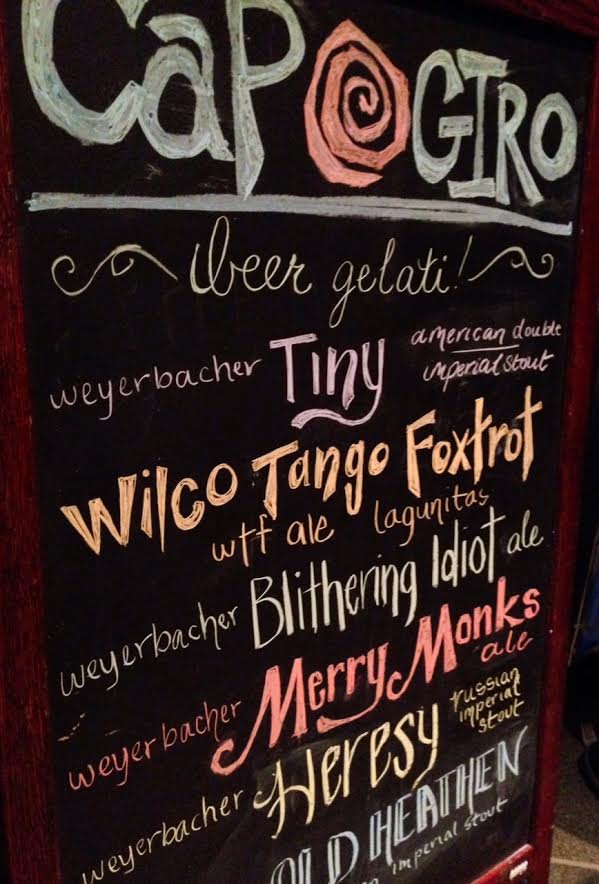 CAPOGIRO
beer gelati!
weyerbacher Tiny american double imperial stout
Wilco Tango Foxtrot
wtf ale lagunitas
weyerbacher Blithering Idiot ale
weyerbacher Merry Monks ale
weyerbacher Heresy russian imperial stout
OLD HEATHEN
imperial stout